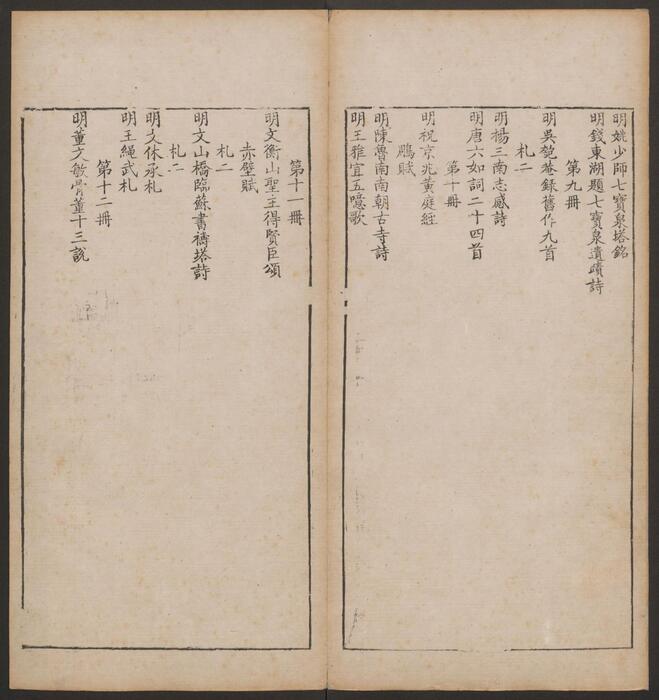 明姚少師七寶泉塔銘
明錢東湖題七寶泉遺蹟詩
第九冊
明吳匏菴錄舊作九首
札二
明楊三南志感詩
明唐六如詞二十四首
第十冊
明祝京兆黃庭經
鵩賦
明陳魯南南朝古寺詩
明王雅宜五噫歌
第十一冊
明文衡山聖主得賢臣頌
赤壁賦
札二
明文山橋臨蘇書禱塔詩
札二
明文休承札
明王繩武札
第十二冊
明董文敏骨董十三說